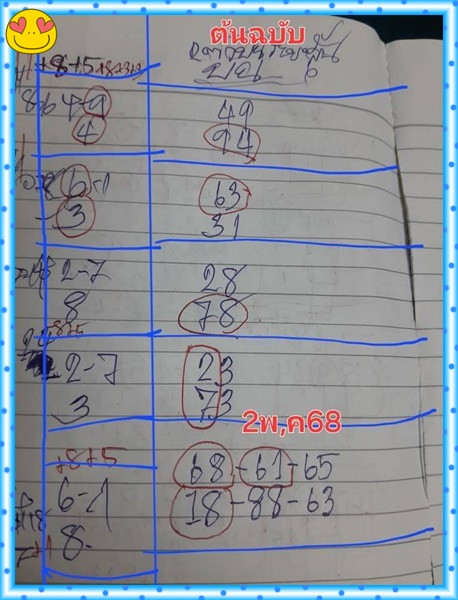 ต้นฉบับ
+8+5+8+3+2
864-9
4
49
94
86-1
3
63
31
2-7
8
28
78
2-7
3
23
73
2พ,ค68
+8+5
6-1
8-
68-61-65
18-88-63